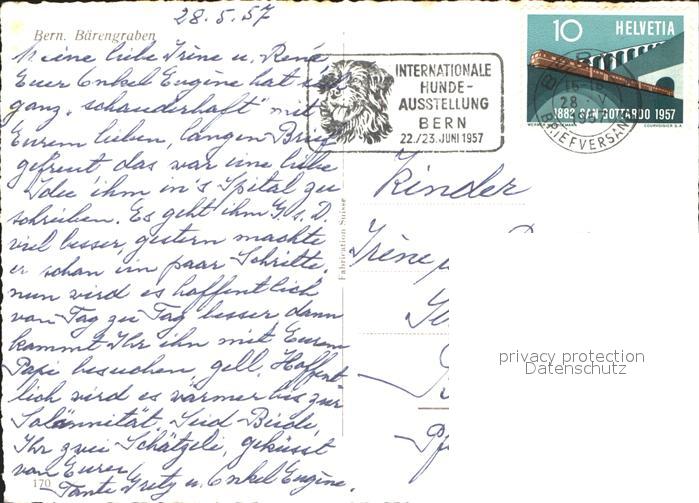 28.5.57
Bern. Bärengraben
Meine liebe Irène u. René
Euer Onkel Eugène hat sich
ganz "schauderhaft" mit
Eurem lieben, langen Brief
gefreut, das war eine liebe
Idee ihm in's Spital zu
schreiben. Es geht ihm G. s. D.
viel besser, gestern machte
er schon ein paar Schritte,
nun wird es hoffentlich
von Tag zu Tag besser dann
kommt Ihr ihn mit Eurem
Papi besuchen, gell. Hoffent
lich wird es wärmer bis zur
Solännität. Seid Beide,
Ihr zwei Schätzeli, geküsst
von Eurer
Tante Grety u. Onkel Eugène.
170
Fabrication Suisse
INTERNATIONALE
HUNDE-
AUSSTELLUNG
BERN
22./23. JUNI 1957
10 HELVETIA
1882 SAN GOTTARDO 1957
COURVOISIER S.A.
BRIEFVERSAND
Kinder
Irène
privacy protection
Datenschutz